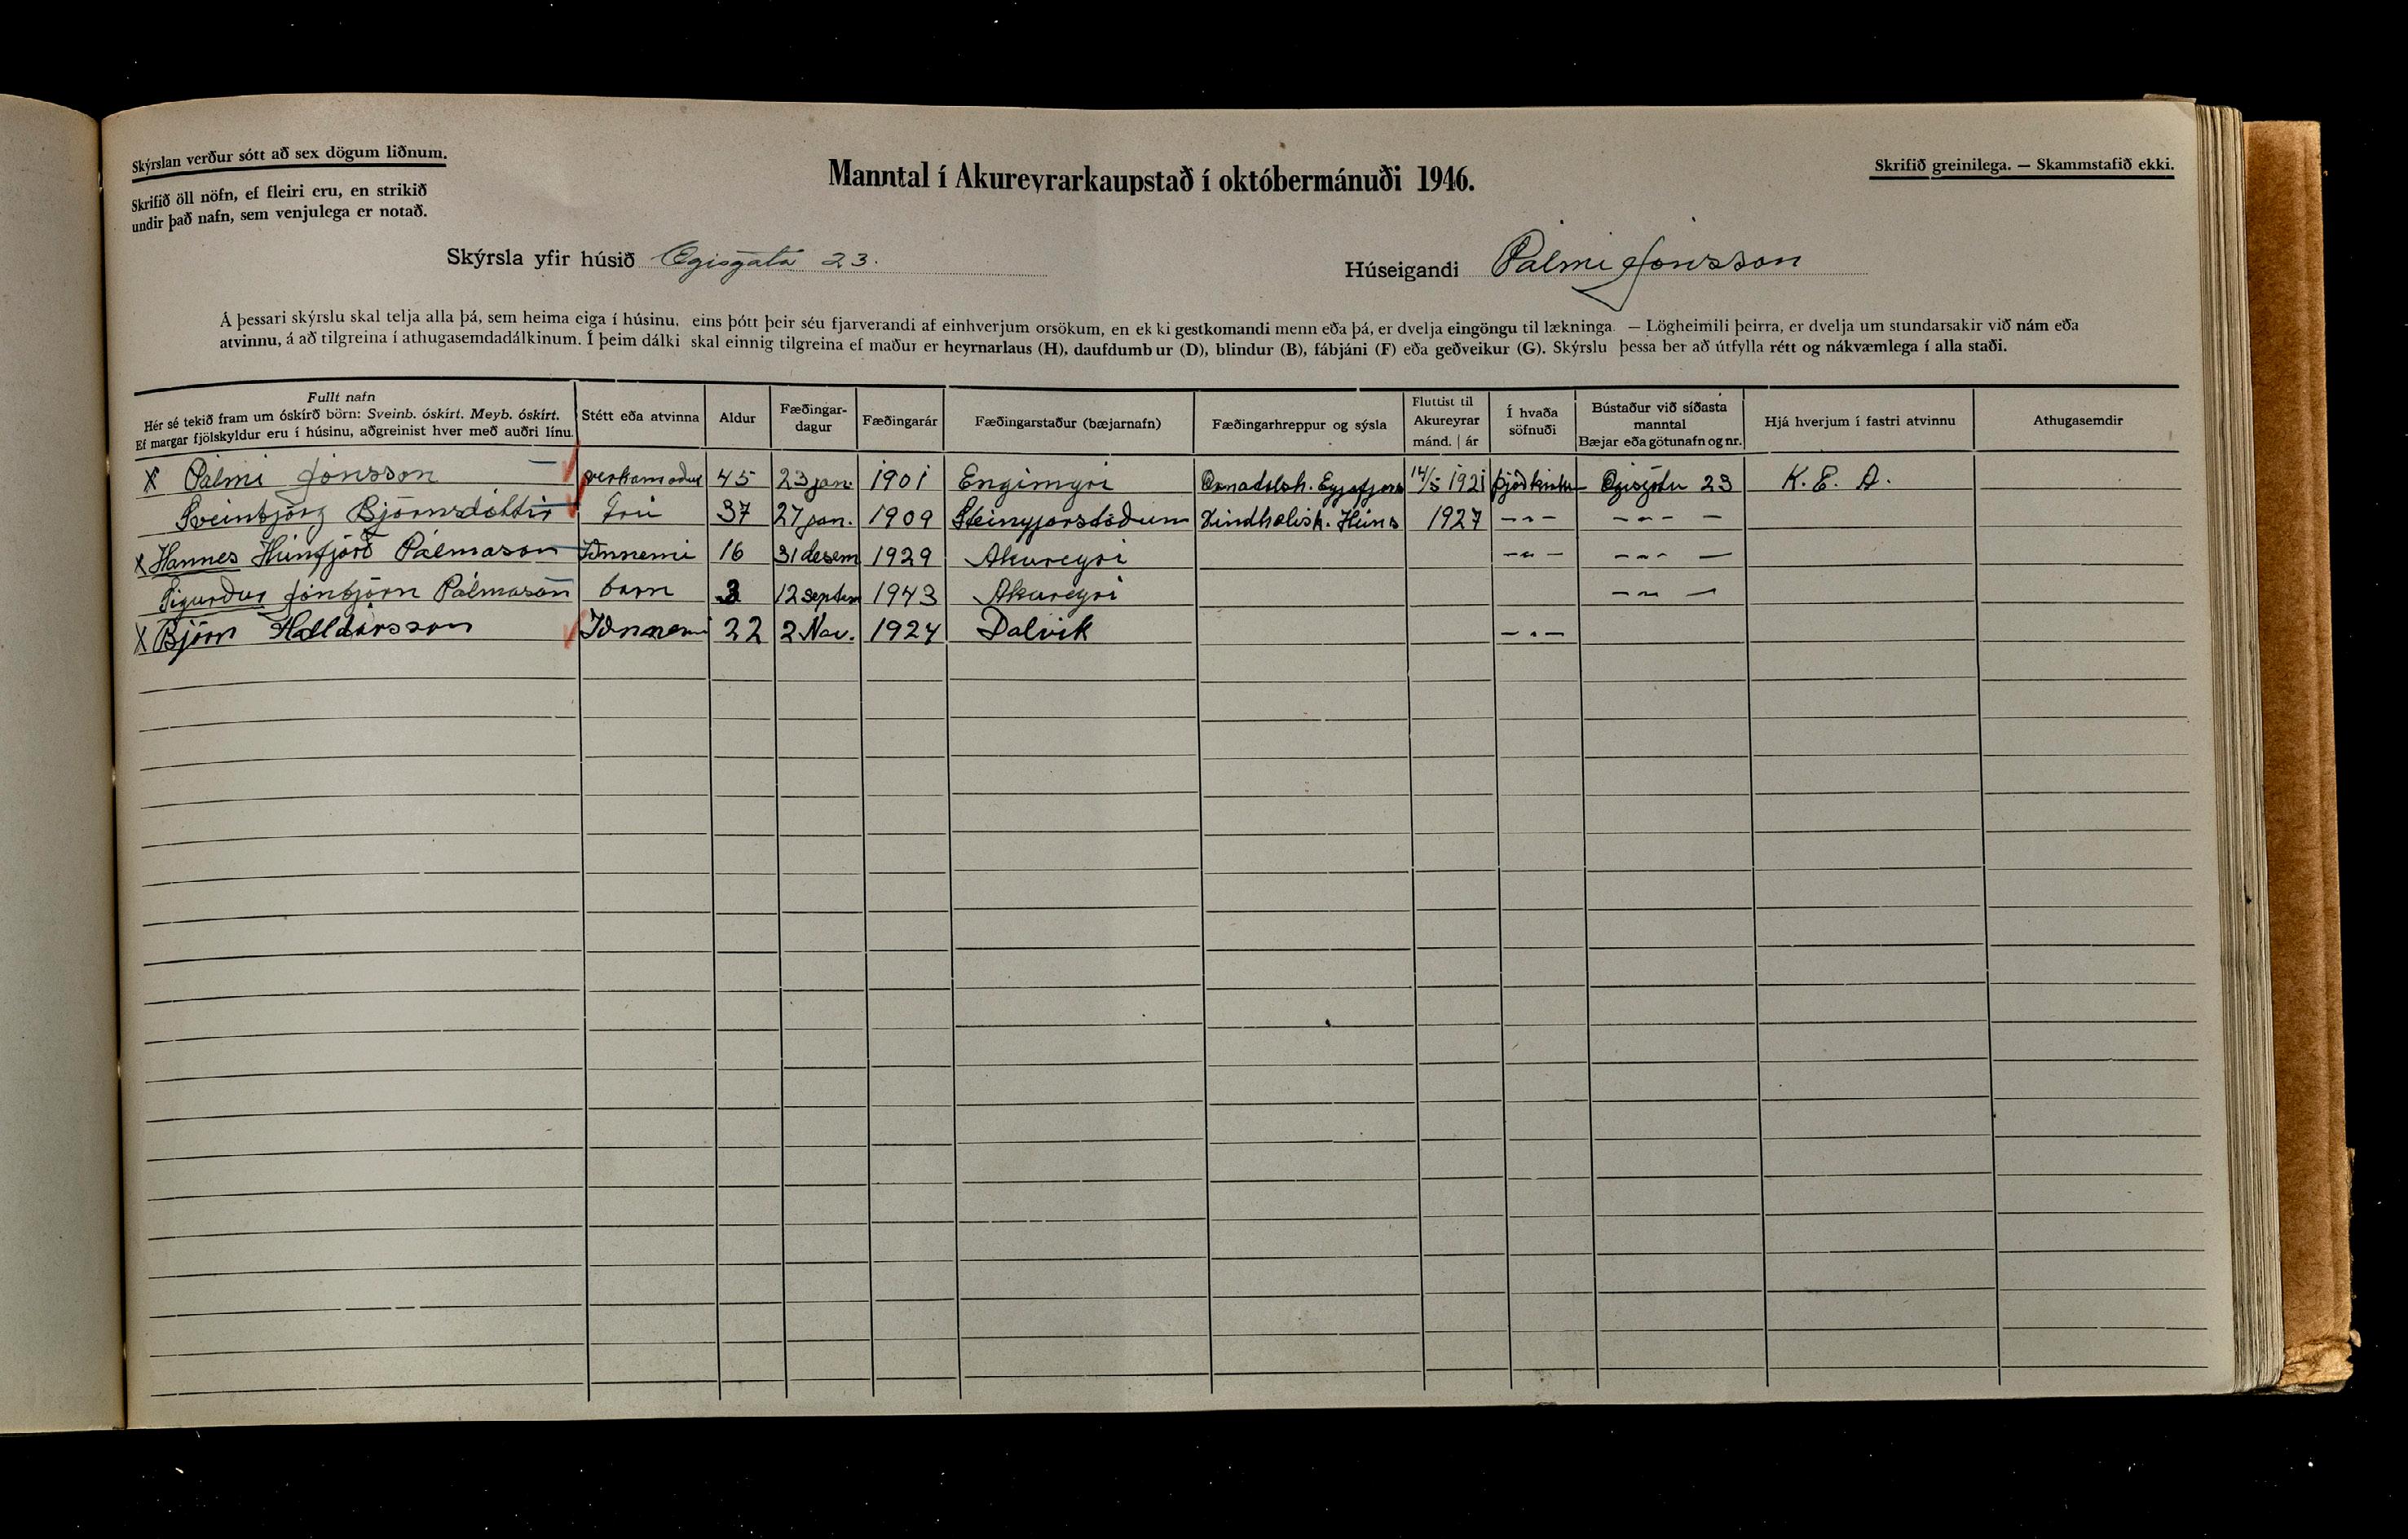 Skýrslan verður sótt að sex dögum liðnum.
Skrifið öll nöfn, ef fleiri eru, en strikið
undir það nafn, sem venjulega er notað.
Manntal í Akureyrarkaupstað í októbermánuði 1946.
Skrifið greinilega. — Skammstafið ekki.
Skýrsla yfir húsið Ægisgata 23.
Húseigandi Pálmi Jónsson
Á þessari skýrslu skal telja alla þá, sem heima eiga í húsinu, eins þótt þeir séu fjarverandi af einhverjum orsökum, en ekki gestkomandi menn eða þá, er dvelja eingöngu til lækninga. — Lögheimili þeirra, er dvelja um stundarsakir við nám eða
atvinnu, á að tilgreina í athugasemdadálkinum. Í þeim dálki skal einnig tilgreina ef maður er heyrnarlaus (H), daufdumbur (D), blindur (B), fábjáni (F) eða geðveikur (G). Skýrslu þessa ber að útfylla rétt og nákvæmlega í alla staði.
Fullt nafn
Hér sé tekið fram um óskírð börn: Sveinb. óskírt. Meyb. óskírt.
Ef margar fjölskyldur eru í húsinu, aðgreinist hver með auðri línu.
Stétt eða atvinna
Aldur
Fæðingar-
dagur
Fæðingarár
Fæðingarstaður (bæjarnafn)
Fæðingarhreppur og sýsla
Fluttist til
Akureyrar
mánd. | ár
Í hvaða
söfnuði
Bústaður við síðasta
manntal
Bæjar eða götunafn og nr.
Hjá hverjum í fastri atvinnu
Athugasemdir
X Pálmi Jónsson verkamaður 45 23 jan. 1901 Engimýri Öxnadalsh. Eyjafjars 14/5 1921 þjóðkirkju Ægisgötu 23 K. E. A.
Sveinbjörg Björnsdóttir frú 37 27 jan. 1909 Húns 1927 -"- -"- —
X Hannes Húnfjörð Pálmason Iðnnemi 16 31 desem 1929 Akureyri -"- -"- —
Sigurður Jónbjörn Pálmason barn 3 12 septem 1943 Akureyri -"- —
X Björn Halldórsson Iðnnemi 22 2 Nóv. 1924 Dalvík -"-